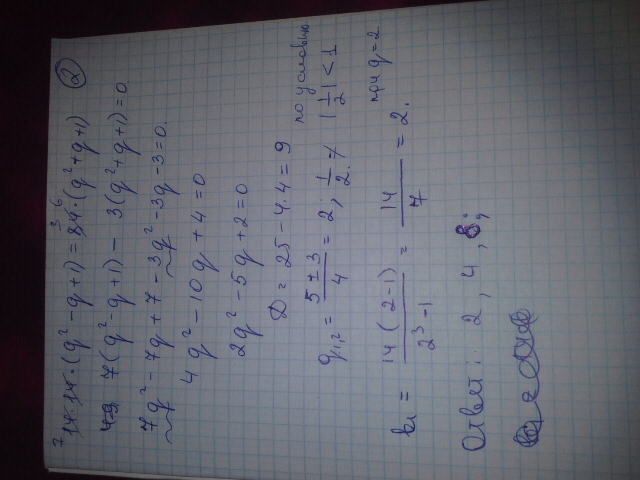 ②
14·14·(q² - q + 1) = 84·(q² + q + 1)
7(q² - q + 1) - 3(q² + q + 1) = 0.
7q² - 7q + 7 - 3q² - 3q - 3 = 0.
4q² - 10q + 4 = 0
2q² - 5q + 2 = 0
D = 25 - 4·4 = 9
q₁,₂ = (5 ± 3)/4 = 2; 1/2. по условию |1/2| < 1
b₁ = 14(2 - 1)/(2³ - 1) = 14/7 = 2. при q = 2
Ответ: 2, 4, 8;